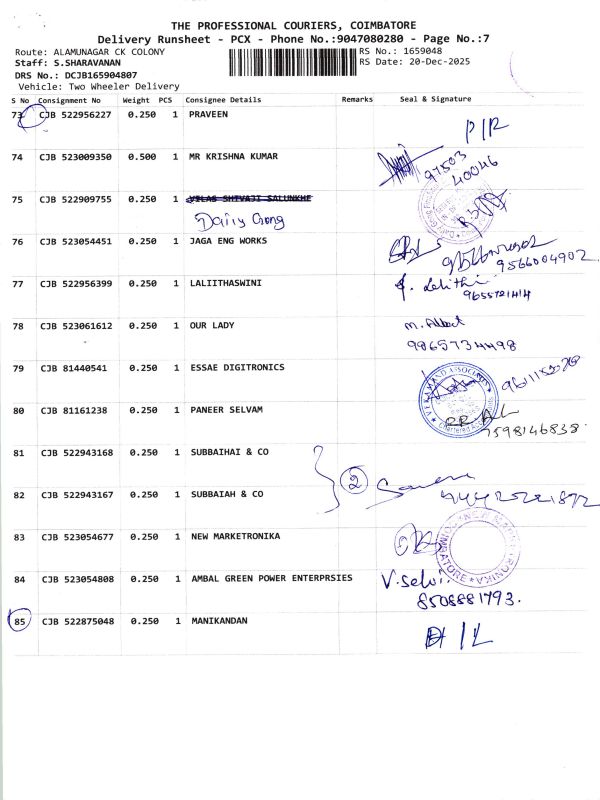 THE PROFESSIONAL COURIERS, COIMBATORE
Delivery Runsheet - PCX - Phone No.:9047080280 - Page No.:7
Route: ALAMUNAGAR CK COLONY RS No.: 1659048
Staff: S.SHARAVANAN RS Date: 20-Dec-2025
DRS No.: DCJB165904807
Vehicle: Two Wheeler Delivery
S No Consignment No Weight PCS Consignee Details Remarks Seal & Signature
73 CJB 522956227 0.250 1 PRAVEEN
P/R
74 CJB 523009350 0.500 1 MR KRISHNA KUMAR
97503
40046
75 CJB 522909755 0.250 1 VILAS SHIVAJI SALUNKHE
76 CJB 523054451 0.250 1 JAGA ENG WORKS
9566004902
77 CJB 522956399 0.250 1 LALIITHASWINI
9655721414
78 CJB 523061612 0.250 1 OUR LADY
M. Albert
9865734498
79 CJB 81440541 0.250 1 ESSAE DIGITRONICS
80 CJB 81161238 0.250 1 PANEER SELVAM
7598146838
81 CJB 522943168 0.250 1 SUBBAIHAI & CO
2
82 CJB 522943167 0.250 1 SUBBAIAH & CO
83 CJB 523054677 0.250 1 NEW MARKETRONIKA
84 CJB 523054808 0.250 1 AMBAL GREEN POWER ENTERPRSIES
V. Selvi
8508881793.
85 CJB 522875048 0.250 1 MANIKANDAN
D/L